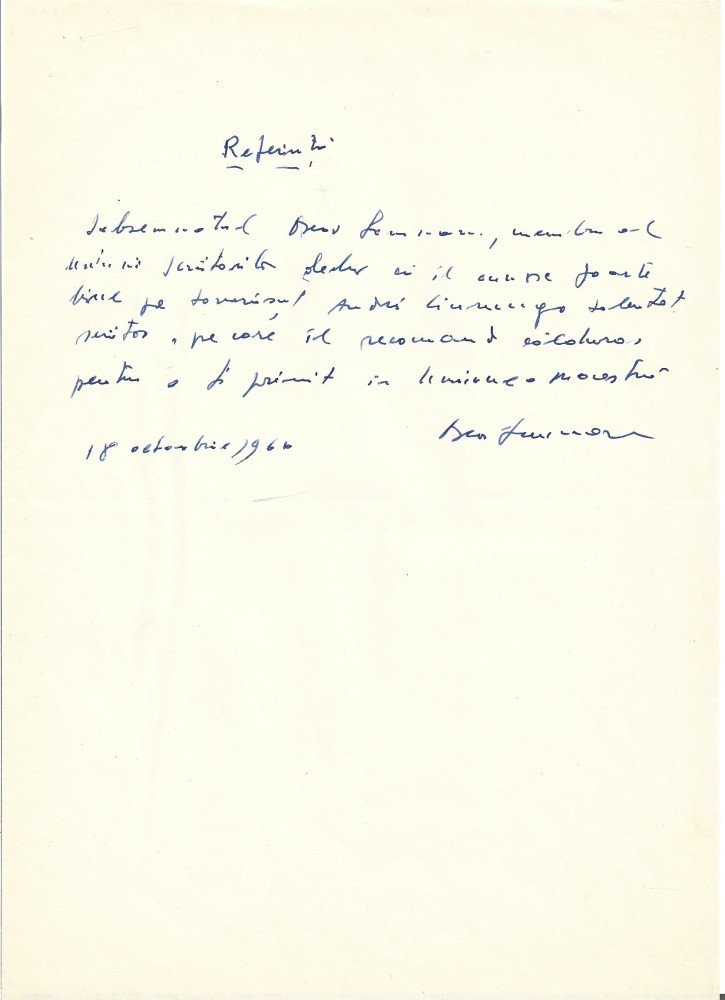 Referință
Subsemnatul membru al
Uniunii Scriitorilor declar că îl cunosc foarte
bine pe tovarășul Andrei Ciurunga talentat
scriitor, pe care îl recomand călduros
pentru a fi primit în Uniunea noastră
18 octombrie 1966